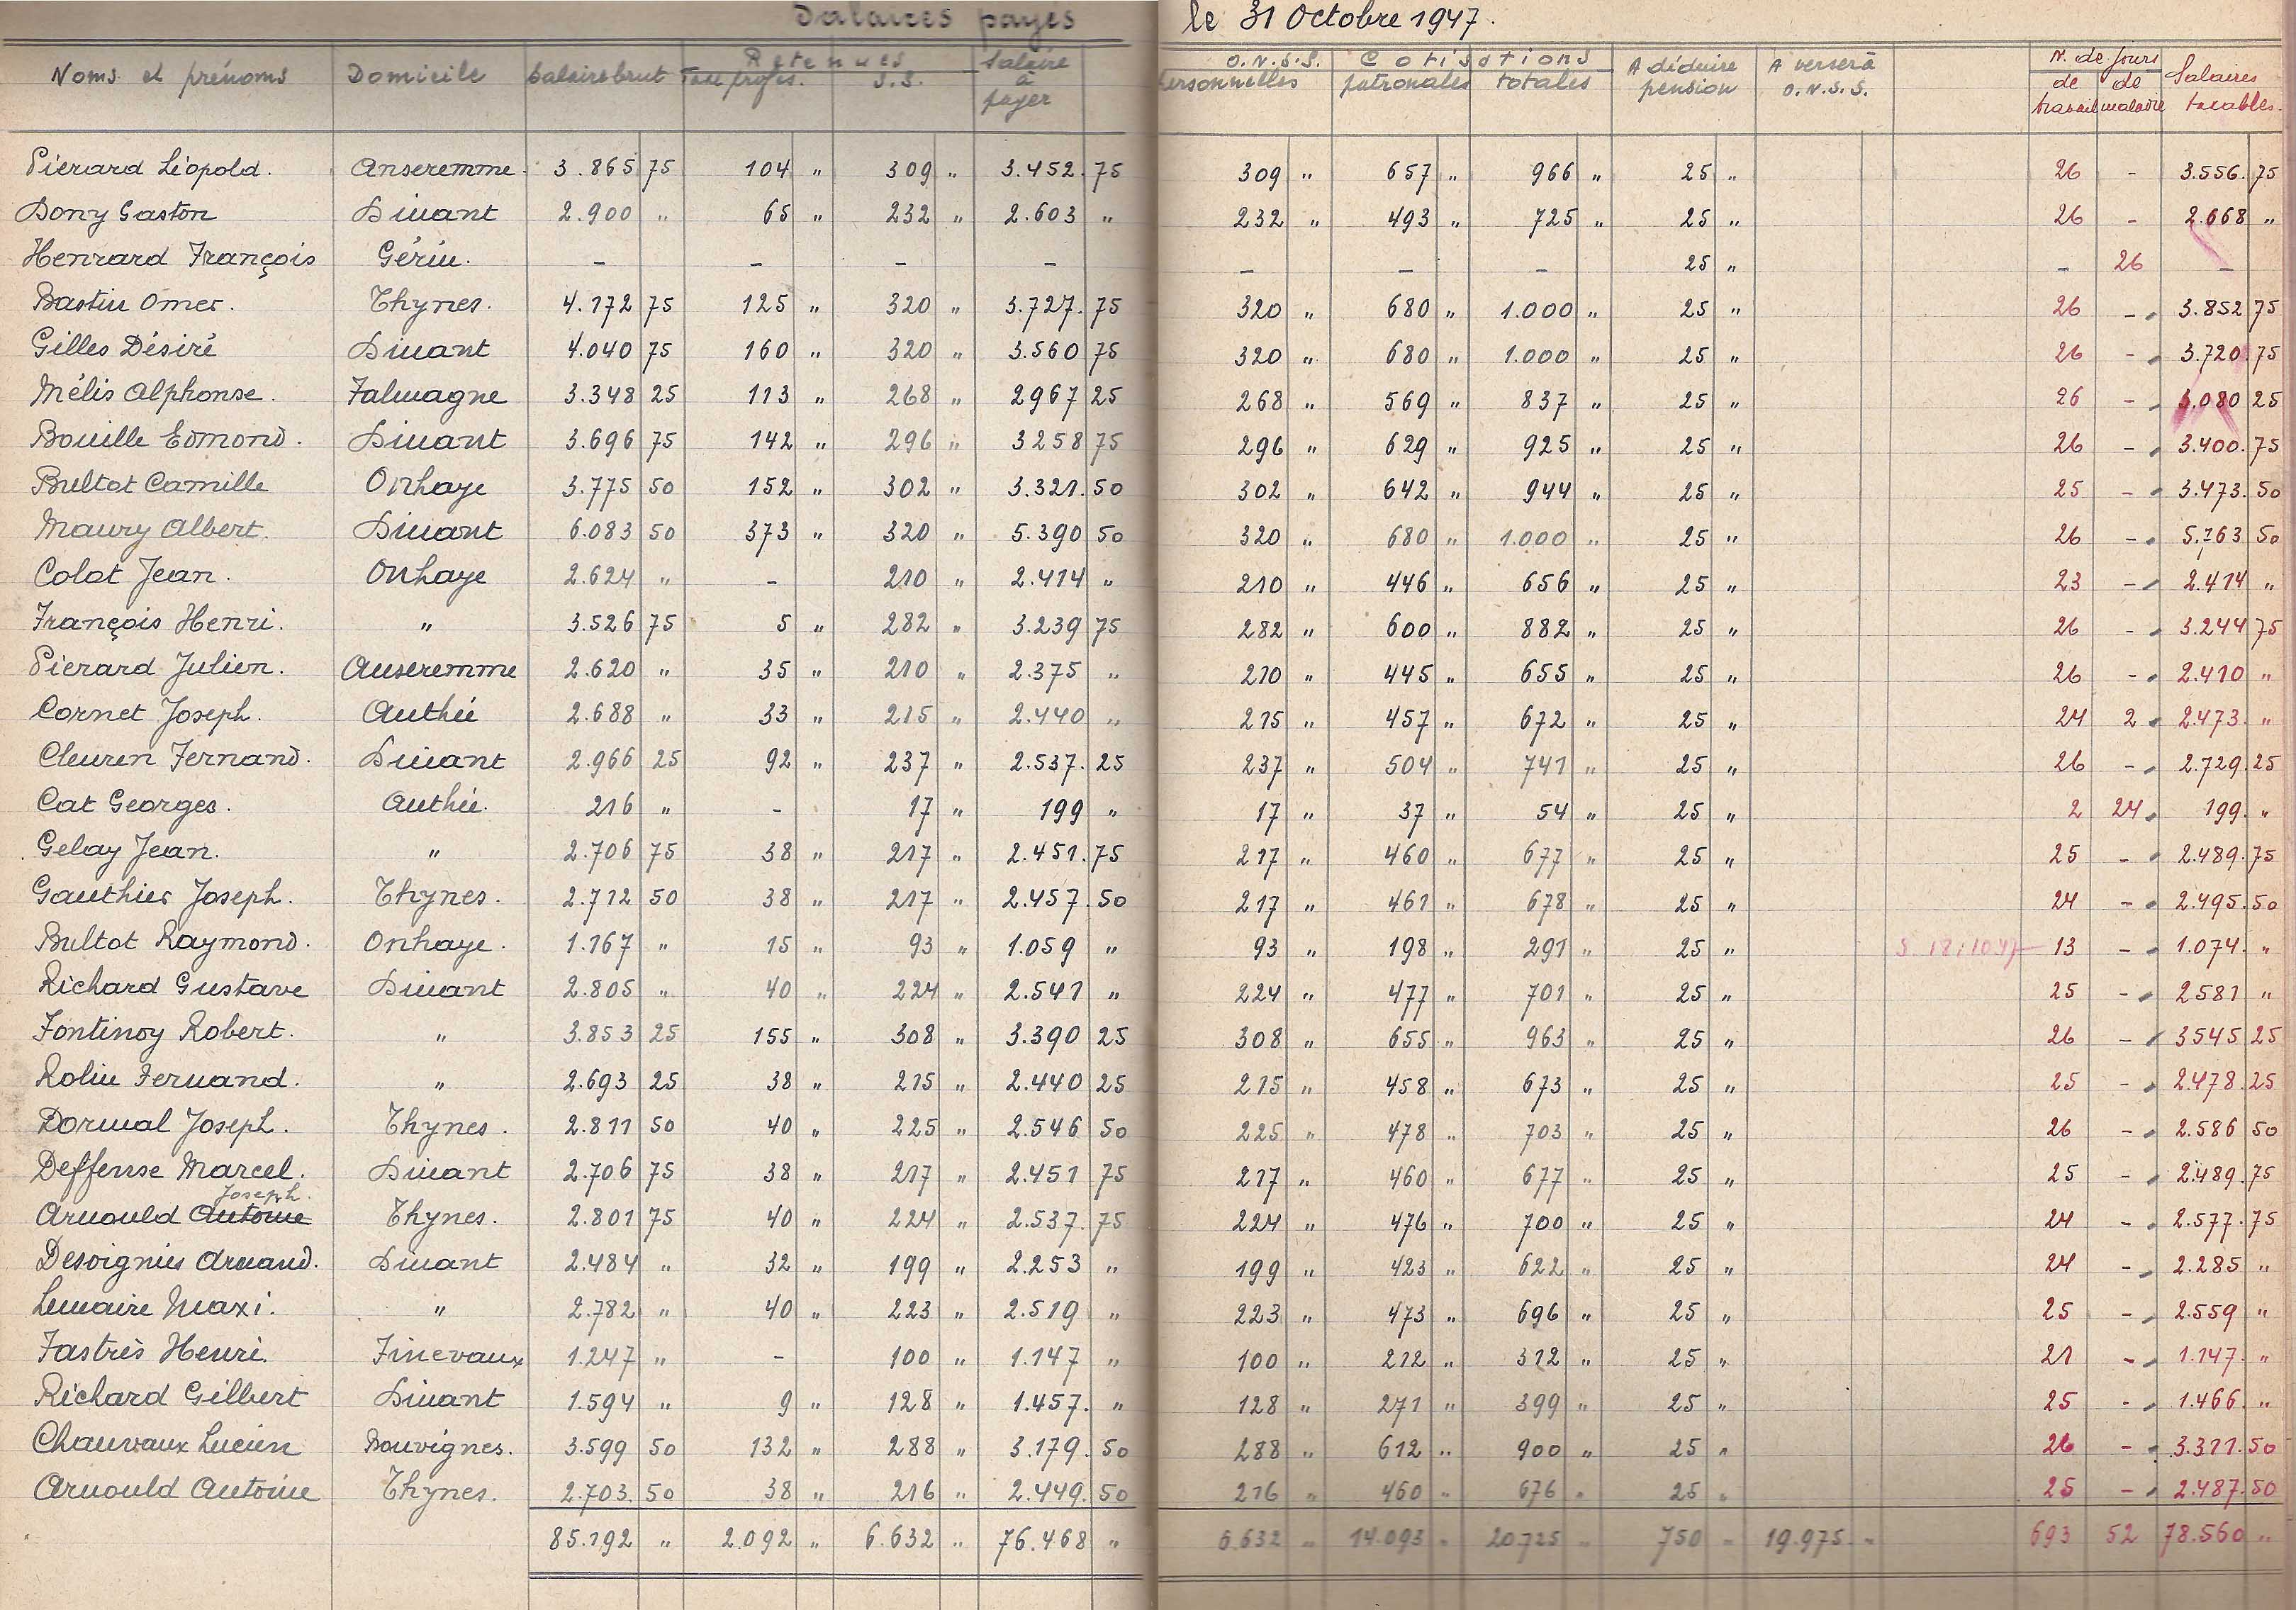 Salaires payés le 31 Octobre 1947.
Noms et prénoms Domicile Salaire brut Retenues Salaire à payer O.N.S.S. Cotisations A déduire pension A verser à O.N.S.S. N. de jours Salaires taxables.
Taxe profes. S.S. personnelles patronales totales de travail de maladie
Piérard Léopold. Anseremme. 3.865 75 104 " 309 " 3.452. 75 309 " 657 " 966 " 25 " 26 - 3.556. 75
Dony Gaston Dinant 2.900 " 65 " 232 " 2.603 " 232 " 493 " 725 " 25 " 26 - 2.668 "
Henrard François Gérin. - - - - - - - 25 " - 26 -
Bastin Omer. Thynes. 4.172 75 125 " 320 " 3.727. 75 320 " 680 " 1.000 " 25 " 26 - 3.852 75
Gilles Désiré Dinant 4.040 75 160 " 320 " 3.560 75 320 " 680 " 1.000 " 25 " 26 - 3.720. 75
Mélis Alphonse. Falmagne 3.348 25 113 " 268 " 2967 25 268 " 569 " 837 " 25 " 26 - 3.080 25
Bouille Edmond. Dinant 3.696 75 142 " 296 " 3258 75 296 " 629 " 925 " 25 " 26 - 3.400. 75
Bultot Camille Onhaye 3.775 50 152 " 302 " 3.321. 50 302 " 642 " 944 " 25 " 25 - 3.473. 50
Maury Albert. Dinant 6.083 50 373 " 320 " 5.390 50 320 " 680 " 1.000 " 25 " 26 - 5.763 50
Colot Jean. Onhaye 2.624 " - 210 " 2.414 " 210 " 446 " 656 " 25 " 23 - 2.414 "
François Henri. " 3.526 75 5 " 282 " 3.239 75 282 " 600 " 882 " 25 " 26 - 3.244 75
Piérard Julien. Anseremme 2.620 " 35 " 210 " 2.375 " 210 " 445 " 655 " 25 " 26 - 2.410 "
Cornet Joseph. Anthée 2.688 " 33 " 215 " 2.440 " 215 " 457 " 672 " 25 " 24 2 2.473. "
Cleuren Fernand. Dinant 2.966 25 92 " 237 " 2.537. 25 237 " 504 " 741 " 25 " 26 - 2.729. 25
Cat Georges. Anthée. 216 " - 17 " 199 " 17 " 37 " 54 " 25 " 2 24 199. "
Gelay Jean. " 2.706 75 38 " 217 " 2.451. 75 217 " 460 " 677 " 25 " 25 - 2.489. 75
Gauthier Joseph. Thynes. 2.712 50 38 " 217 " 2.457. 50 217 " 461 " 678 " 25 " 24 - 2.495. 50
Bultot Raymond. Onhaye. 1.167 " 15 " 93 " 1.059 " 93 " 198 " 291 " 25 " 13 - 1.074. "
Richard Gustave Dinant 2.805 " 40 " 224 " 2.541 " 224 " 477 " 701 " 25 " 25 - 2581 "
Fontinoy Robert. " 3.853 25 155 " 308 " 3.390 25 308 " 655 " 963 " 25 " 26 - 3545 25
Rolin Fernand. " 2.693 25 38 " 215 " 2.440 25 215 " 458 " 673 " 25 " 25 - 2.478. 25
Dormal Joseph. Thynes. 2.811 50 40 " 225 " 2.546 50 225 " 478 " 703 " 25 " 26 - 2.586 50
Deffense Marcel. Dinant 2.706 75 38 " 217 " 2.451 75 217 " 460 " 677 " 25 " 25 - 2.489. 75
Joseph.
Arnould Antoine Thynes. 2.801 75 40 " 224 " 2.537. 75 224 " 476 " 700 " 25 " 24 - 2.577. 75
Desvignies Armand. Dinant 2.484 " 32 " 199 " 2.253 " 199 " 423 " 622 " 25 " 24 - 2.285 "
Lemaire Maxi. " 2.782 " 40 " 223 " 2.519 " 223 " 473 " 696 " 25 " 25 - 2.559 "
Fastrès Henri. Finevaux 1.247 " - 100 " 1.147 " 100 " 212 " 312 " 25 " 21 - 1.147. "
Richard Gilbert Dinant 1.594 " 9 " 128 " 1.457. " 128 " 271 " 399 " 25 " 25 - 1.466. "
Chauvaux Lucien Bouvignes. 3.599 50 132 " 288 " 3.179. 50 288 " 612 " 900 " 25 " 26 - 3.311. 50
Arnould Antoine Thynes. 2.703. 50 38 " 216 " 2.449. 50 216 " 460 " 676 " 25 " 25 - 2.487. 50
85.192 " 2.092 " 6.632 " 76.468 " 6.632 " 14.093 " 20.725 " 750 " 19.975. " 693 52 78.560 "